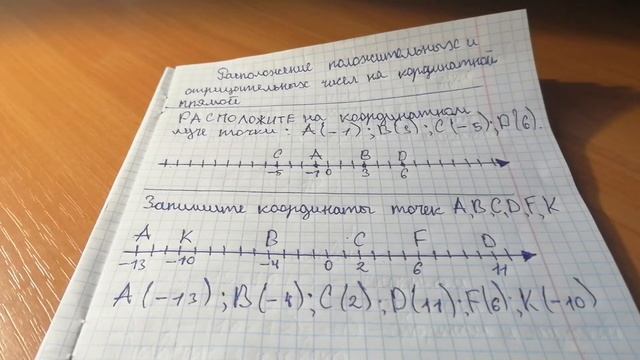 Расположение положительных и
отрицательных чисел на кординатной
прямой
РАСПОЛОЖИТЕ на координатном
луче точки: A(-1); B(3); C(-5); D(6).
C A B D
-5 -1 0 3 6
Запишите координаты точек A,B,C,D,F,K
A K B C F D
-13 -10 -4 0 2 6 11
A(-13); B(-4); C(2); D(11); F(6); K(-10)